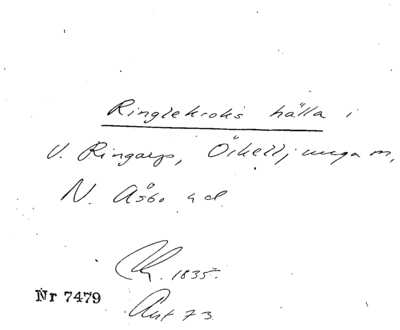 Ringlekroks hälla i
V. Ringarp, Örkelljunga m,
N. Åsbo hd.
1835.
Nr 7479
Ant 73